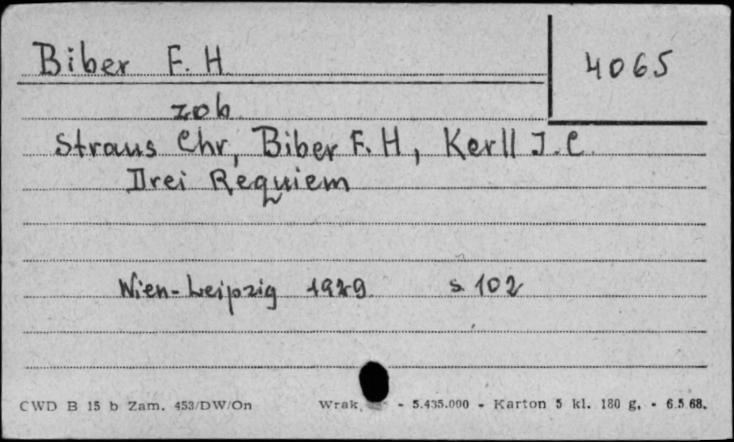 Biber F. H.
4065
zob
Straus Chr, Biber F. H, Kerll J. C.
Drei Requiem
Wien-Leipzig 1929 s. 102
CWD B 15 b Zam. 453/DW/On Wrak, - 5.435.000 - Karton 5 kl. 180 g. - 6.5.68.